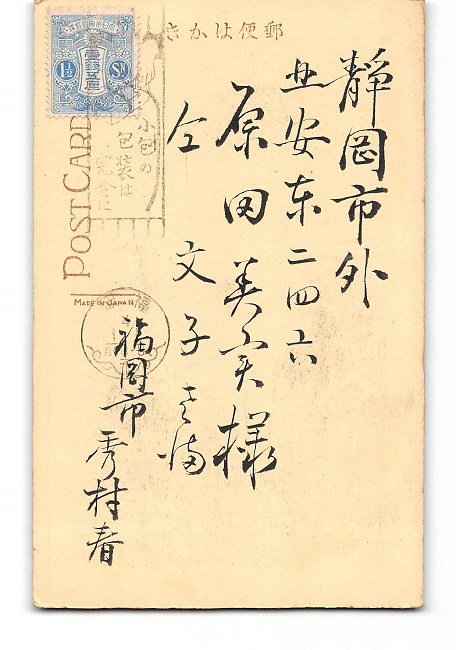 郵便はかき
静岡市外
北安東二四六
原田美実様
仝文子さま
福岡市
秀村春
POST CARD
MADE IN JAPAN
小包の
包装は
完全に
1½ Sn